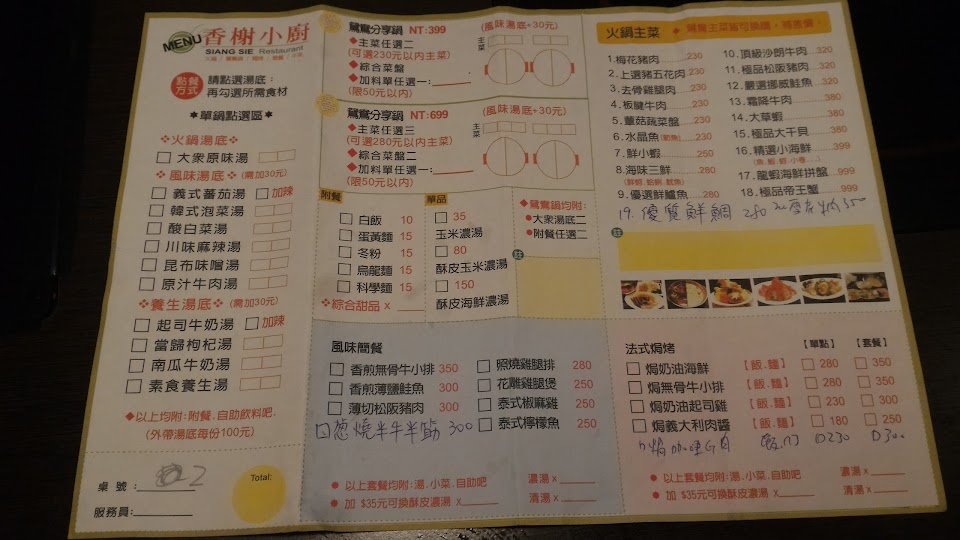 MENU 香榭小廚
SIANG SIE Restaurant
點餐方式
請點選湯底：
再勾選所需食材
＊單鍋點選區＊
❖火鍋湯底❖
□ 大衆原味湯
❖風味湯底❖ (需加30元)
□ 義式蕃茄湯 □加辣
□ 韓式泡菜湯
□ 酸白菜湯
□ 川味麻辣湯
□ 昆布味噌湯
□ 原汁牛肉湯
❖養生湯底❖ (需加30元)
□ 起司牛奶湯 □加辣
□ 當歸枸杞湯
□ 南瓜牛奶湯
□ 素食養生湯
◆以上均附：附餐.自助飲料吧.
(外帶湯底每份100元)
桌號：2
服務員：
Total:
鴛鴦分享鍋 NT:399 (風味湯底+30元)
◆主菜任選二
(可選230元以內主菜)
◆綜合菜盤
◆加料單任選一：
(限50元以內)
主菜
鴛鴦分享鍋 NT:699 (風味湯底+30元)
◆主菜任選三
(可選280元以內主菜)
◆綜合菜盤二
◆加料單任選一：
(限50元以內)
主菜
附餐
□ 白飯 10
□ 蛋黃麵 15
□ 冬粉 15
□ 烏龍麵 15
□ 科學麵 15
❖綜合甜品 x
單品
□ 35
玉米濃湯
□ 80
酥皮玉米濃湯
□ 150
酥皮海鮮濃湯
◆鴛鴦鍋均附：
◆大衆湯底二
◆附餐任選二
註
火鍋主菜 ◆鴛鴦主菜皆可換購，補差價。
1.梅花豬肉 230
2.上選豬五花肉 230
3.去骨雞腿肉 230
4.板腱牛肉 230
5.蕈菇蔬菜盤 230
6.水晶魚(魴魚) 230
7.鮮小蝦 250
8.海味三鮮 280
(鮮蚵.蛤蜊.魷魚)
9.優選鮮鱸魚 280
10.頂級沙朗牛肉 320
11.極品松阪豬肉 320
12.嚴選挪威鮭魚 320
13.霜降牛肉 380
14.大草蝦 380
15.極品大干貝 380
16.精選小海鮮 399
17.龍蝦海鮮拼盤 999
18.極品帝王蟹 999
19.優質鮮鯛 280
350
註
風味簡餐
□ 香煎無骨牛小排 350
□ 香煎薄鹽鮭魚 300
□ 薄切松阪豬肉 300
□ 蔥燒半牛半筋 300
□ 照燒雞腿排 280
□ 花雕雞腿煲 250
□ 泰式椒麻雞 250
□ 泰式檸檬魚 250
● 以上套餐均附：湯.小菜.自助吧
● 加 $35元可換酥皮濃湯 x
濃湯 x
清湯 x
法式焗烤 【單點】 【套餐】
□ 焗奶油海鮮 【飯.麵】 □ 280 □ 350
□ 焗無骨牛小排 【飯.麵】 □ 280 □ 350
□ 焗奶油起司雞 【飯.麵】 □ 230 □ 300
□ 焗義大利肉醬 【飯.麵】 □ 180 □ 250
□ 焗咖哩 □230 □300
● 以上套餐均附：湯.小菜.自助吧
● 加 $35元可換酥皮濃湯 x
濃湯 x
清湯 x